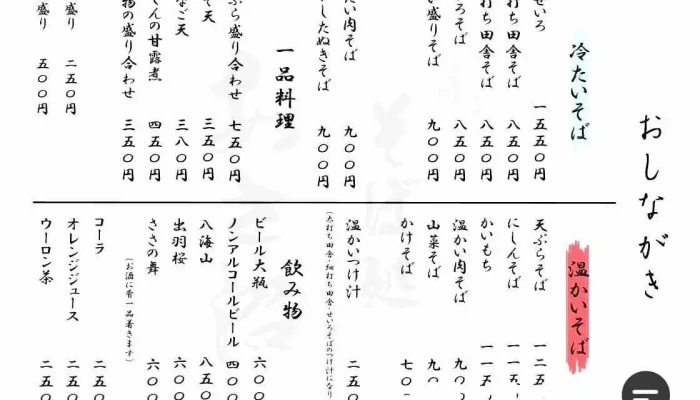 おしながき
冷たいそば
せいろ 一五五〇円
打ち田舎そば 八五〇円
打ち田舎そば 八五〇円
ろそば 八五〇円
い盛りそば 九〇〇円
したぬきそば 九〇〇円
たい肉そば 九〇〇円
一品料理
ぷら盛り合わせ 七五〇円
そ天 三五〇円
なご天 三八〇円
んの甘露煮 四五〇円
物の盛り合わせ 三五〇円
盛り 二五〇円
盛り 五〇〇円
温かいそば
天ぷらそば 一二五
にしんそば 一一五
かいもち 一一五
温かい肉そば 九〇
山菜そば 九〇
かけそば 七〇
温かいつけ汁 二五〇
(太打ち田舎・細打ち田舎・せいろそばのつけ汁になり
飲み物
ビール大瓶 六〇〇
ノンアルコールビール 四〇〇
八海山 八五〇
出羽桜 六〇〇
ささの舞 六〇〇
(お酒に肴一品着きます)
コーラ 二五〇
オレンジジュース 二五〇
ウーロン茶 二五〇